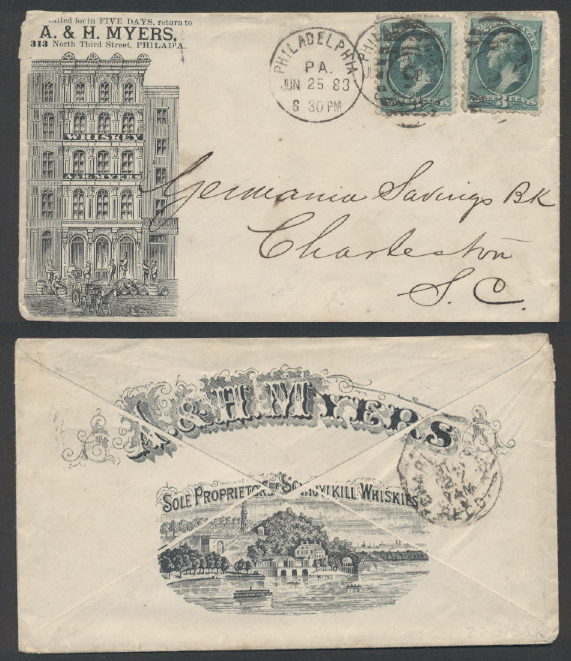 called for in FIVE DAYS, return to
A. & H. MYERS,
313 North Third Street, PHILAD'A.
WHISKEY
A & H. MYERS
PHILADELPHIA
PA.
JUN 25 83
8 30 PM
PHILADELPHIA
3 CENTS
Germania Savings Bk
Charleston
S. C.
A. & H. MYERS
SOLE PROPRIETORS OF SCHUYLKILL WHISKIES